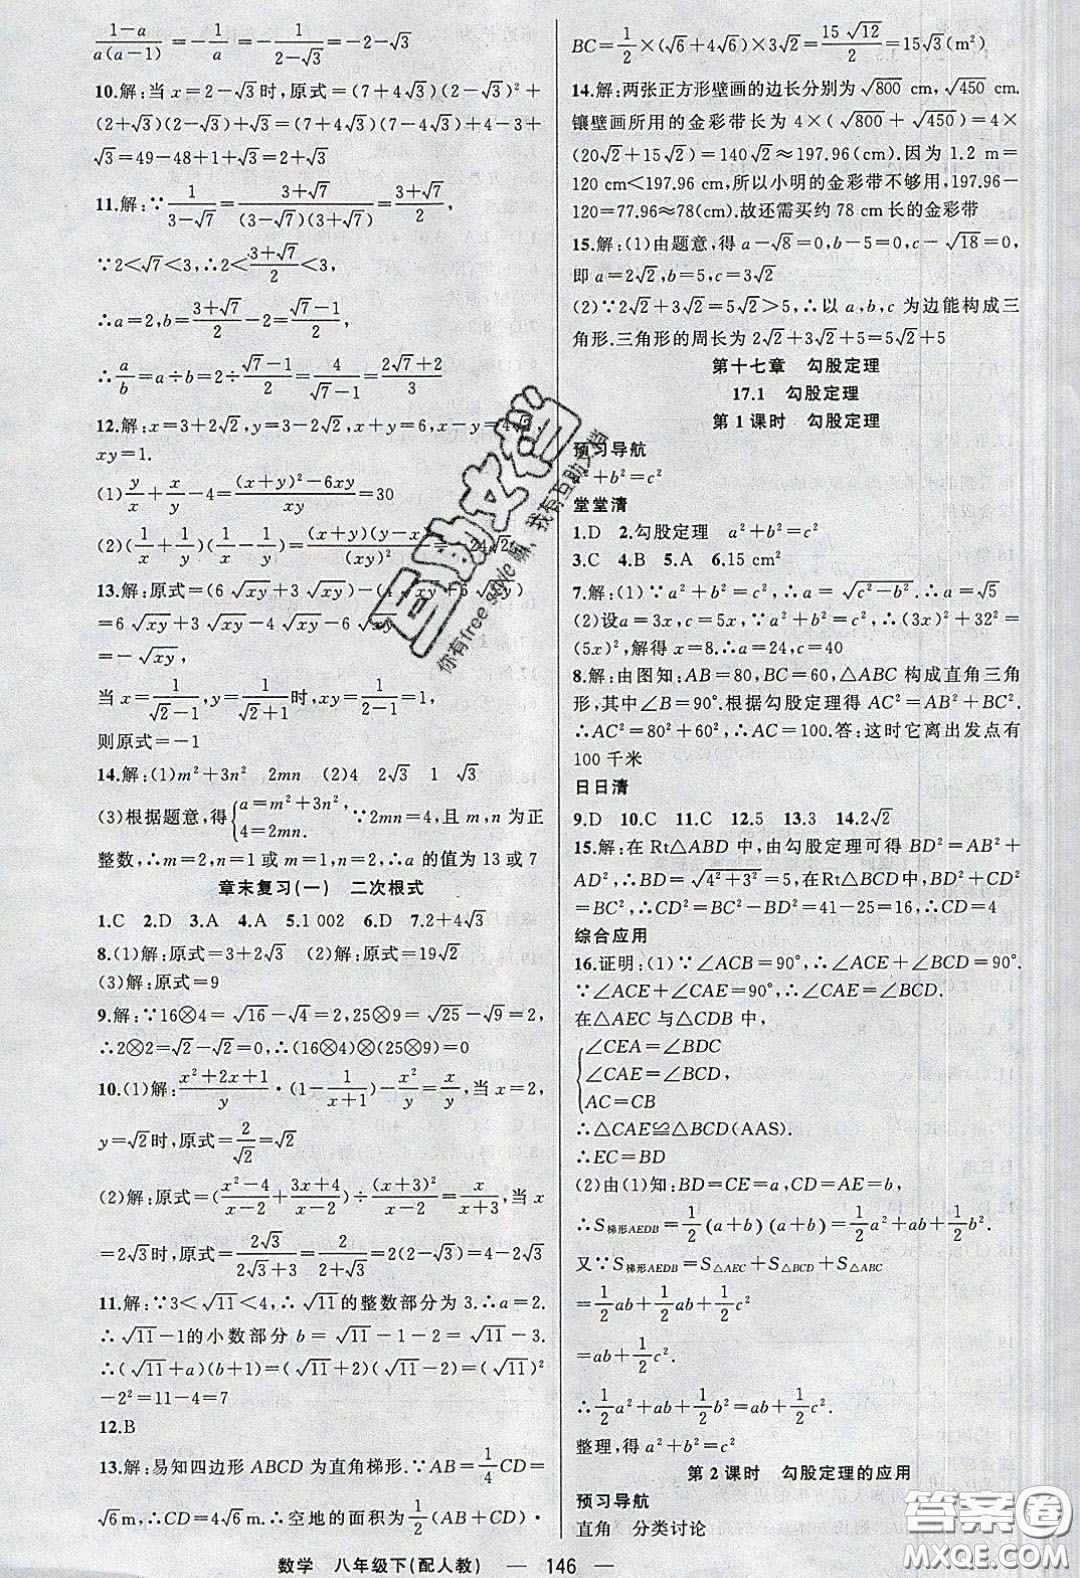 (1-a)/(a(a-1))=-1/a=-1/(2-√3)=-2-√3
10.解:当x=2-√3时,原式=(7+4√3)(2-√3)²+
(2+√3)(2-√3)+√3=(7+4√3)(7-4√3)+4-3+
√3=49-48+1+√3=2+√3
11.解:∵1/(3-√7)=(3+√7)/((3-√7)(3+√7))=(3+√7)/2,
∵2<√7<3,∴2<(3+√7)/2<3,
∴a=2,b=(3+√7)/2-2=(√7-1)/2,
∴a/b=a÷b=2÷(√7-1)/2=4/(√7-1)=(2√7+2)/3
12.解:x=3+2√2,y=3-2√2,x+y=6,x-y=4√2
xy=1.
(1)y/x+x/y-4=((x+y)²-6xy)/xy=30
(2)(1/x+1/y)(1/x-1/y)=(x+y)(y-x)/(xy)²=-24√2
13.解:原式=(6√xy+3√xy)-(4√xy+6√xy)
=6√xy+3√xy-4√xy-6√xy
=-√xy,
当x=1/(√2-1),y=1/(√2+1)时,xy=1/(2-1)=1,
则原式=-1
14.解:(1)m²+3n² 2mn (2)4 2√3 1 √3
(3)根据题意,得{a=m²+3n², 4=2mn. ∵2mn=4,且m,n为正
整数,∴m=2,n=1或m=1,n=2,∴a的值为13或7
章末复习(一) 二次根式
1.C 2.D 3.A 4.A 5.1 002 6.D 7.2+4√3
8.(1)解:原式=3+2√3 (2)解:原式=19√2
(3)解:原式=9
9.解:∵16⊗4=√16-√4=2,25⊗9=√25-√9=2,
∴2⊗2=√2-√2=0,∴(16⊗4)⊗(25⊗9)=0
10.(1)解:(x²+2x+1)/y·(1-1/(x+1))-x²/y=x/y,当x=2,
y=√2时,原式=2/√2=√2
(2)解:原式=((x²-4)/(x-2)+(3x+4)/(x-2))÷(x+3)²/(x-2)=x/(x+3),当x
=2√3时,原式=2√3/(2√3+3)=2/(2+√3)=2(2-√3)=4-2√3
11.解:∵3<√11<4,∴√11的整数部分为3.∴a=2.
∴√11-1的小数部分b=√11-1-2=√11-3.
∴(√11+a)(b+1)=(√11+2)(√11-2)=(√11)²
-2²=11-4=7
12.B
13.解:易知四边形ABCD为直角梯形.∵AB=1/4CD=
√6m,∴CD=4√6m.∴空地的面积为1/2(AB+CD)·
BC=1/2×(√6+4√6)×3√2=15√12/2=15√3(m²)
14.解:两张正方形壁画的边长分别为√800 cm,√450 cm.
镶壁画所用的金彩带长为4×(√800+√450)=4×
(20√2+15√2)=140√2≈197.96(cm).因为1.2 m=
120 cm<197.96 cm,所以小明的金彩带不够用,197.96-
120=77.96≈78(cm).故还需买约78 cm长的金彩带
15.解:(1)由题意,得a-√8=0,b-5=0,c-√18=0,
即a=2√2,b=5,c=3√2
(2)∵2√2+3√2=5√2>5,∴以a,b,c为边能构成三
角形.三角形的周长为2√2+3√2+5=5√2+5
第十七章 勾股定理
17.1 勾股定理
第1课时 勾股定理
预习导航
a²+b²=c²
堂堂清
1.D 2.勾股定理 a²+b²=c²
3.C 4.B 5.A 6.15 cm²
7.解:(1)∵a²+b²=c²,∴a=√(c²-b²).∴a=√5
(2)设a=3x,c=5x,∵a²+b²=c²,∴(3x)²+32²=
(5x)²,解得x=8.∴a=24,c=40
8.解:由图知:AB=80,BC=60,△ABC构成直角三角
形,其中∠B=90°.根据勾股定理得AC²=AB²+BC².
∴AC²=80²+60².∴AC=100.答:这时它离出发点有
100千米
日日清
9.D 10.C 11.C 12.5 13.3 14.2√2
15.解:在Rt△ABD中,由勾股定理可得BD²=AB²+
AD²,∴BD=√(4²+5²)=√41,在Rt△BCD中,BD²
=BC²+CD²,∴CD²=BC²-BD²=41-25=16,∴CD=4
综合应用
16.证明:(1)∵∠ACB=90°,∴∠ACE+∠BCD=90°.
∵∠ACE+∠CAE=90°,∴∠CAE=∠BCD.
在△AEC与△CDB中,
∠CEA=∠BDC
∠CAE=∠BCD,
AC=CB
∴△CAE≌△BCD(AAS).
∴EC=BD
(2)由(1)知:BD=CE=a,CD=AE=b,
∴S梯形AEDB=1/2(a+b)(a+b)=1/2a²+ab+1/2b².
又∵S梯形AEDB=S△AEC+S△BCD+S△ABC
=1/2ab+1/2ab+1/2c²
=ab+1/2c².
∴1/2a²+ab+1/2b²=ab+1/2c².
整理,得a²+b²=c²
第2课时 勾股定理的应用
预习导航
直角 分类讨论
数学 八年级下(配人教) — 146 —
互助文档
你有free style嘛,我有互助文档
答案圈
MXQE.COM